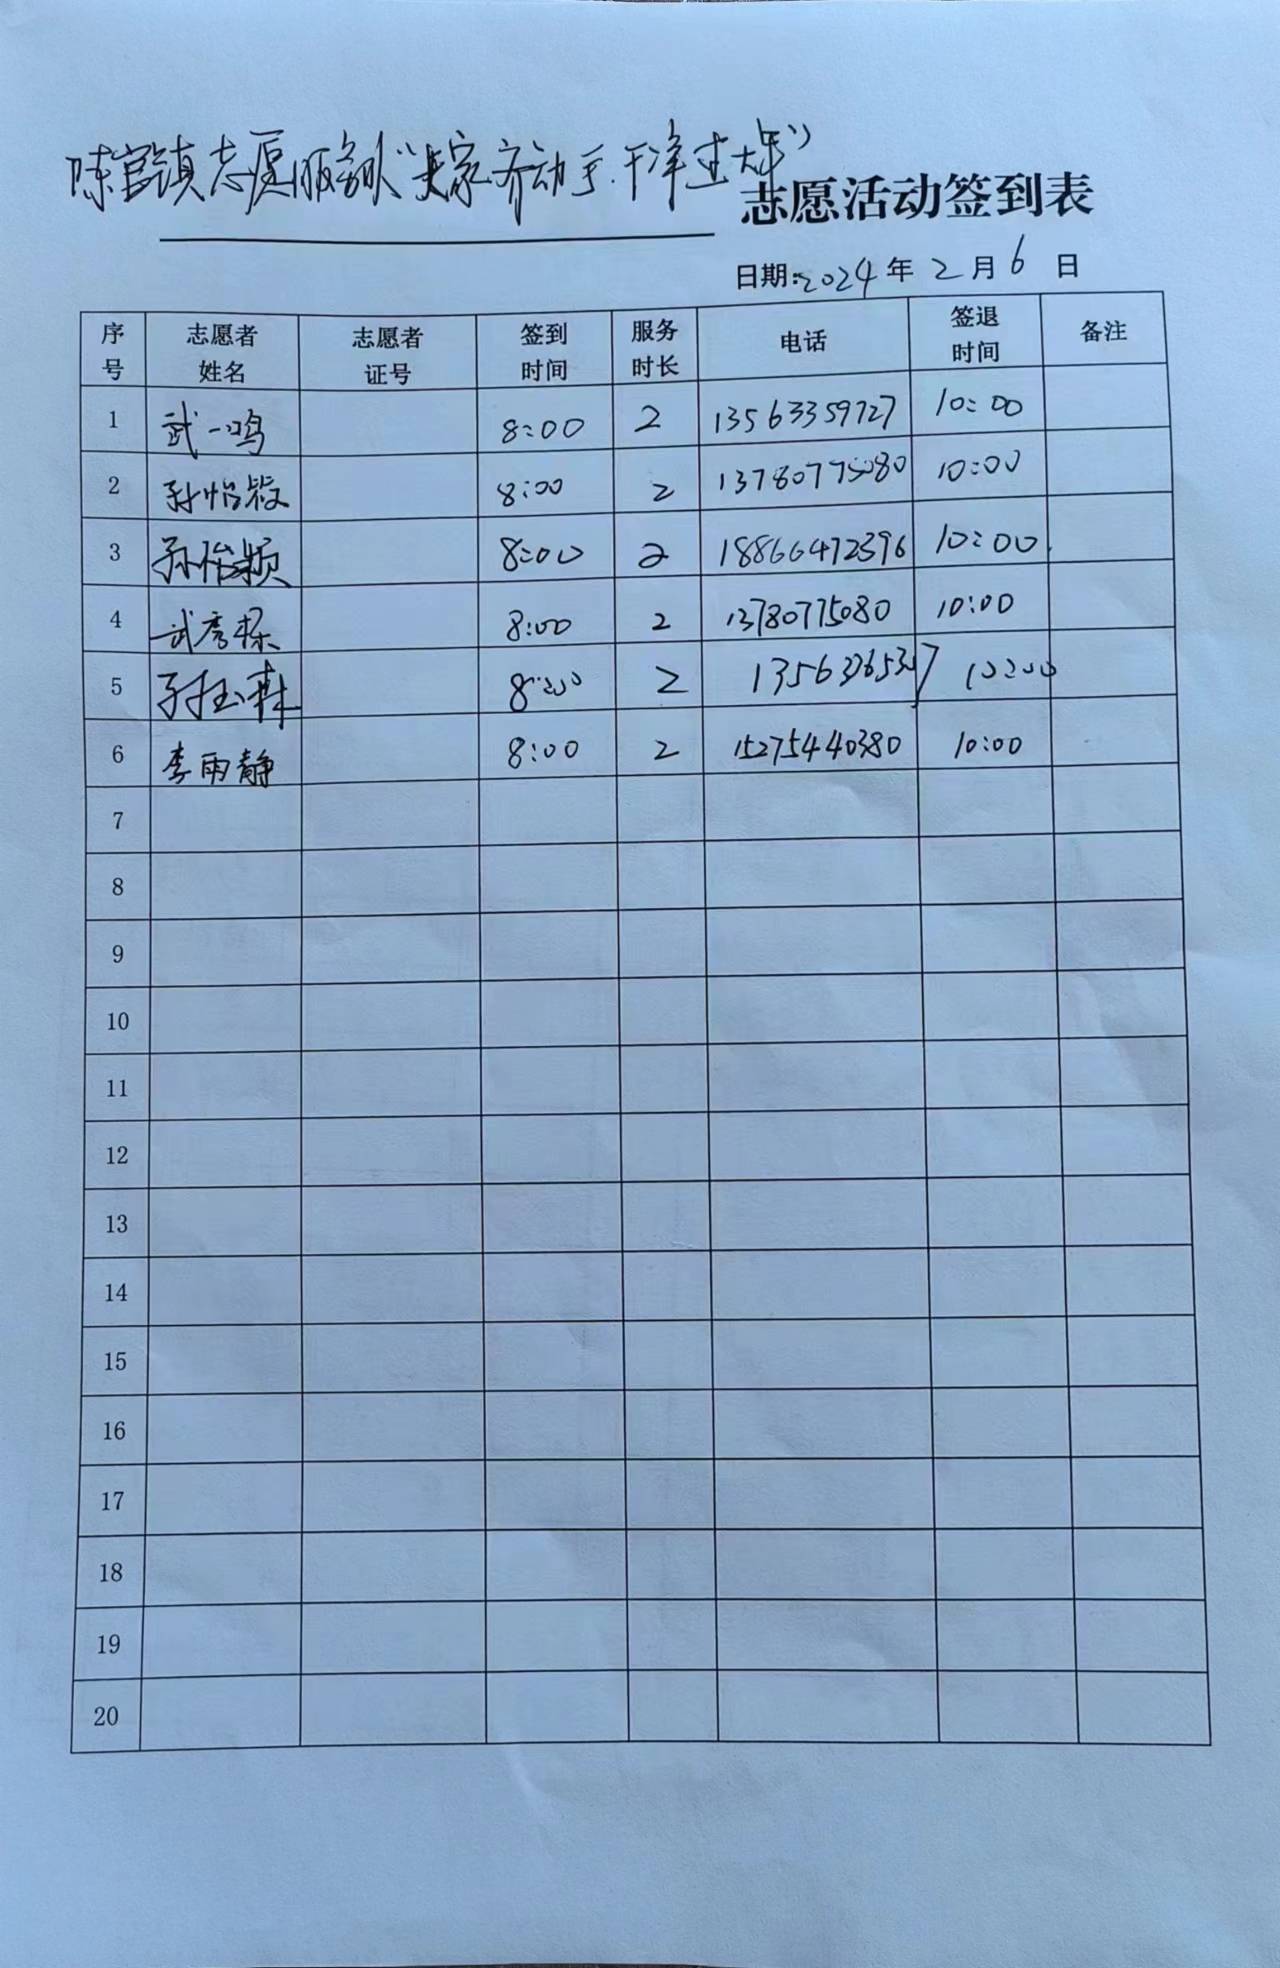 陈官镇志愿服务队“大家齐动手.干净过大年”
志愿活动签到表
日期:2024年2月6日
序号 志愿者姓名 志愿者证号 签到时间 服务时长 电话 签退时间 备注
1 武一鸣 8:00 2 13563359727 10:00
2 孙怡 8:00 2 13780775080 10:00
3 孙怡颖 8:00 2 18866472396 10:00
4 武秀 8:00 2 13780775080 10:00
5 孙玉 8:00 2 10:00
6 李雨静 8:00 2 15275440380 10:00
7
8
9
10
11
12
13
14
15
16
17
18
19
20